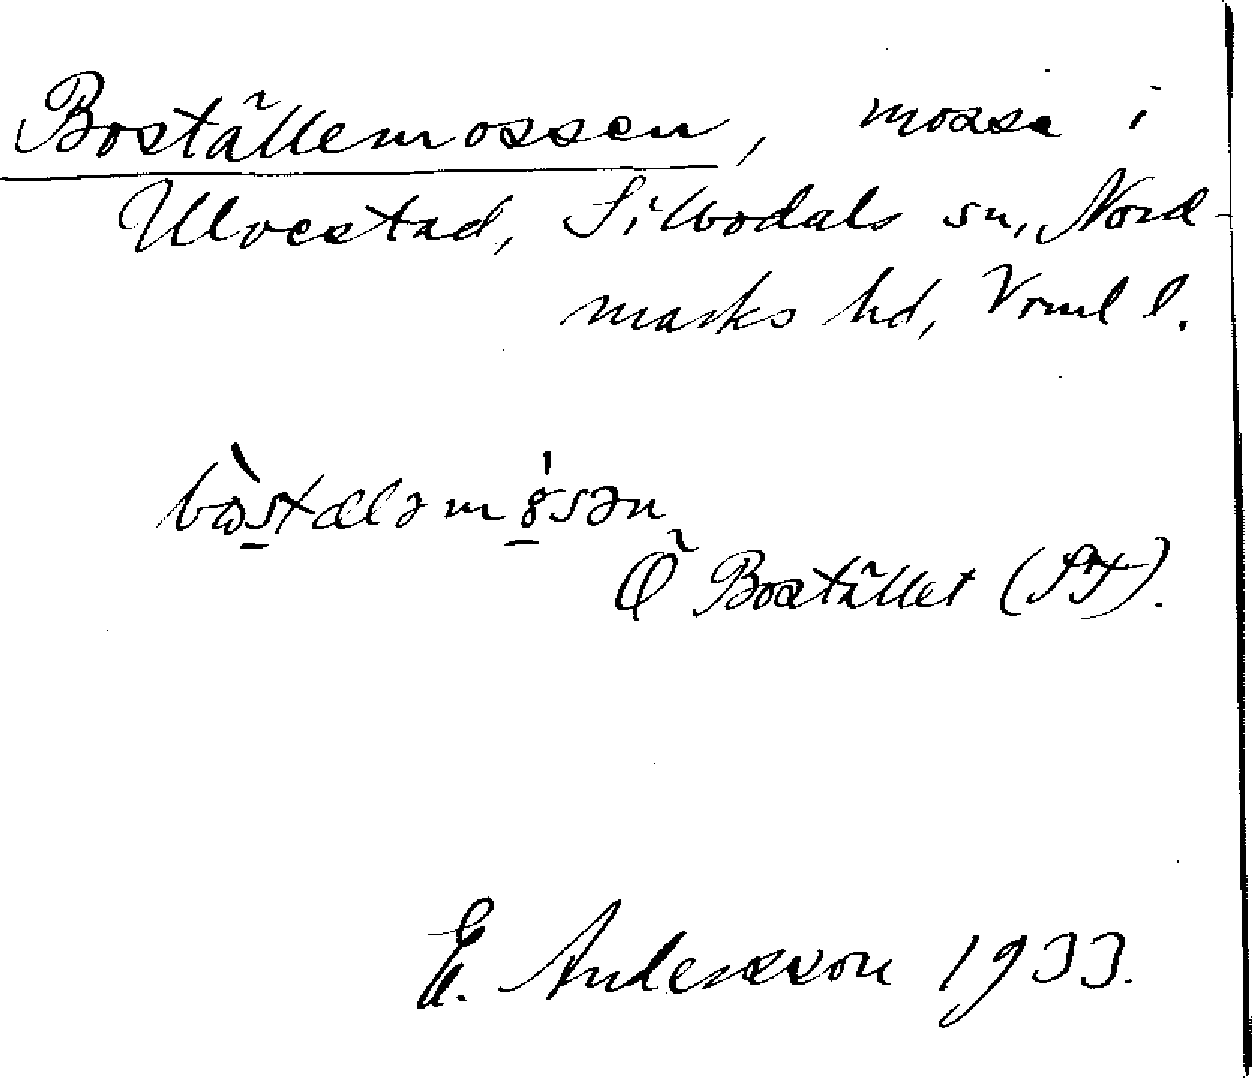 Boställemossen, mosse i
Ulvestad, Silbodals sn, Nord-
marks hd, Vrml l.
Ö Bostället (ST).
E. Andersson 1933.